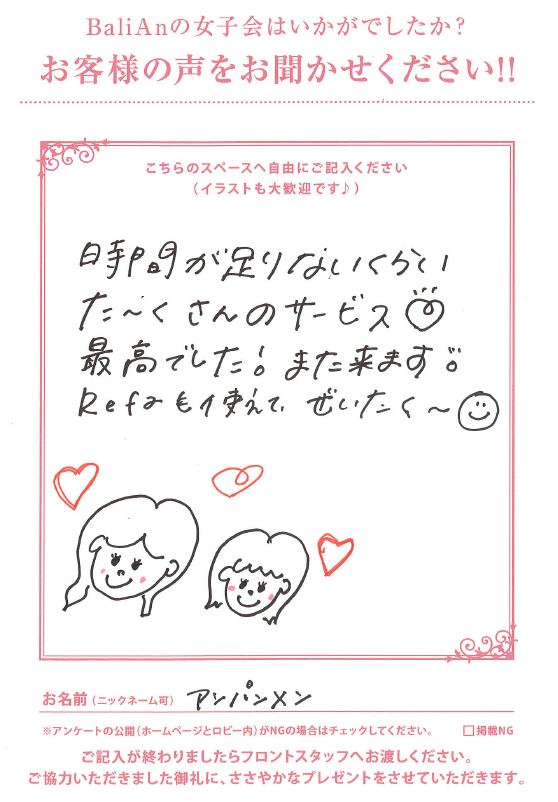 BaliAnの女子会はいかがでしたか？
お客様の声をお聞かせください!!
こちらのスペースへ自由にご記入ください
（イラストも大歓迎です♪）
時間が足りないくらい
た〜くさんのサービス♡
最高でした！また来ます
Refaも使えて ぜいたく〜☺
お名前（ニックネーム可） アンパンメン
※アンケートの公開（ホームページとロビー内）がNGの場合はチェックしてください。 □掲載NG
ご記入が終わりましたらフロントスタッフへお渡しください。
ご協力いただきました御礼に、ささやかなプレゼントをさせていただきます。